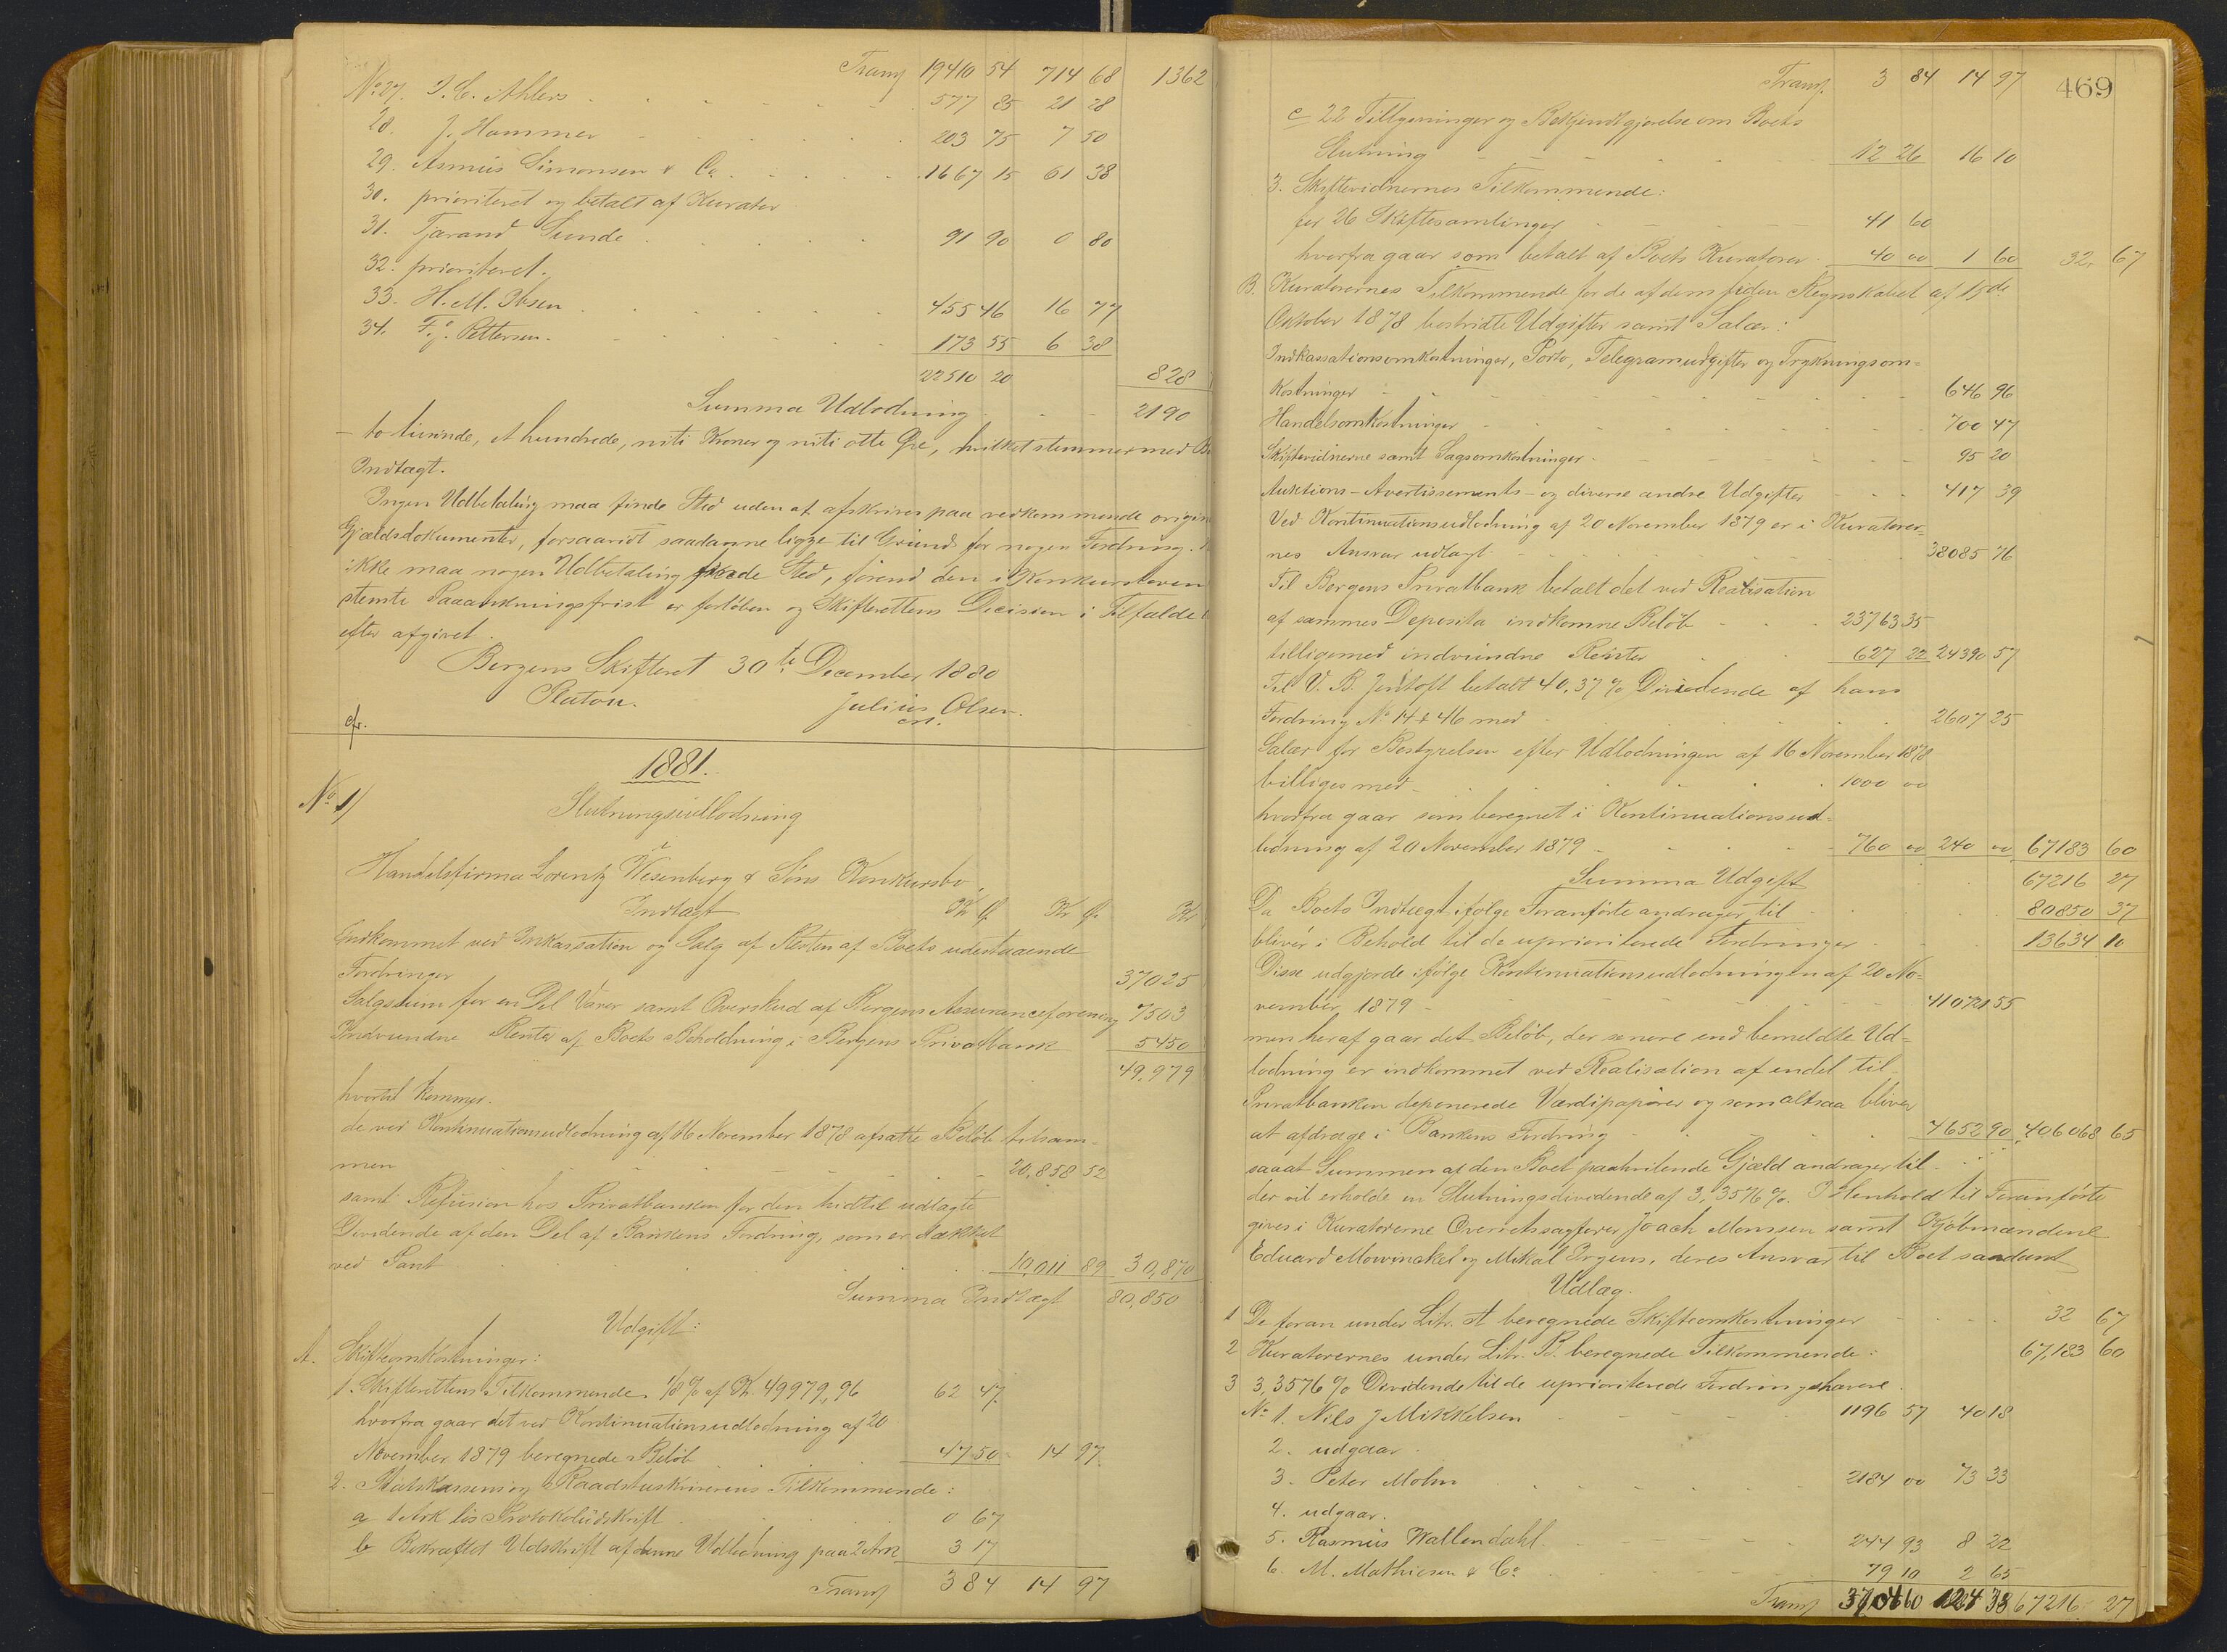 Transp 19410 54 714 68 1362
No 27. J. C. Ahlers 577 85 21 28
28. J. Hammer 203 75 7 50
29. Asmus Simonsen & Co. 1667 15 61 38
30. prioriteret og betalt af Kurator
31. Tjerand Sunde 91 90 0 80
32. prioriteret.
33. H. M. Ibsen 455 46 16 77
34. Fr. Pettersen. 173 55 6 38
22510 20 828
Summa Udlodning 2190
– to tusinde, et hundrede, nitti Kroner og nitti otte Øre, hvilket stemmer med
Indtægt.
Ingen Udbetaling maa finde Sted uden at afskrives paa vedkommende origin
Gjældsdokumenter, forsaavidt saadanne ligge til Grund for nogen Fordring.
ikke maa nogen Udbetaling skede Sted, førend den i Konkursloven
stemte Paaankningsfrist er forløben og Skifterettens Decision i Tilfælde
efter afgivet.
Bergens Skifteret 30te December 1880
Platou. Julius Olsen
cfr. cst.
1881.
No 1/
Slutningsudlodning
i
Handelsfirma Lorentz Wesenberg & Søns Konkursbo
Indtægt Kr Ø. Kr Ø. Kr
Indkommet ved Inkassation og Salg af Resten af Boets udestaaende
Fordringer 37025
Salgssum for en Del Varer samt Overskud af Bergens Assuranceforening 7503
Indvundne Renter af Boets Beholdning i Bergens Privatbank 5450
49,979
hvortil kommer.
de ved Kontinuationsudlodning af 16 November 1878 afsatte Beløb tilsam-
men 20,858 52
samt Refusion hos Privatbanken for den hidtil udlagte
Dividende af den Del af Bankens Fordring, som er dækket
ved Pant 10,011 89 30,870
Summa Indtægt 80,850
Udgift:
A. Skifteomkostninger:
1. Skifterettens Tilkommende 1/8 % af Kr. 49979,96 62 47
hvorfra gaar det ved Kontinuationsudlodning af 20
November 1879 beregnede Beløb 47 50 14 97
2. Statskassens og Raadstuskriverens Tilkommende:
a 1 Ark løs Protokoludskrift 0 67
b Bekræftet Udskrift af denne Udlodning paa 2 Ark 3 17
Transp 3 84 14 97
469
Transp. 3 84 14 97
c 22 Tillysninger og Bekjendtgjørelse om Boets
Slutning 12 26 16 10
3. Skiftevidnernes Tilkommende:
for 26 Skiftesamlinger 41 60
hvorfra gaar som betalt af Boets Kuratorer 40 00 1 60 32, 67
B. Kuratorernes Tilkommende for de af dem siden Regnskabet af 15de
Oktober 1878 bestridte Udgifter samt Salær:
Indkassationsomkostninger, Porto, Telegramudgifter og Trykningsom=
kostninger 646 96
Handelsomkostninger 700 47
Skiftevidnerne samt Sagsomkostninger 95 20
Auktions- Avertissements- og diverse andre Udgifter 417 39
Ved Kontinuationsudlodning af 20 November 1879 er i Kuratorer=
nes Ansvar udlagt 38085 76
Til Bergens Privatbank betalt det ved Realisation
af sammes Deposita indkomne Beløb 23763 35
tilligemed indvundne Renter 627 22 24390 57
Til V. B. Jentoft betalt 40,37 % Dividende af hans
Fordring No 14 & 46 med 2607 25
Salær for Bestyrelsen efter Udlodningen af 16 November 1878
billiges med 1000 00
hvorfra gaar som beregnet i Kontinuationsud=
lodning af 20 November 1879 760 00 240 00 67183 60
Summa Udgift 67216 27
Da Boets Indtægt ifølge Foranførte andrager til 80850 37
bliver i Behold til de uprioriterede Fordringer 13634 10
Disse udgjorde ifølge Kontinuationsudlodningen af 20 No=
vember 1879 410721 55
men heraf gaar det Beløb, der senere end bemeldte Ud=
lodning er indkommet ved Realisation af endel til
Privatbanken deponerede Værdipapirer og som altsaa bliver
at afdrage i Bankens Fordring 4652 90 406068 65
saaat Summen af den Boet paahvilende Gjæld andrager til
der vil erholde en Slutningsdividende af 3,3576 %. I Henhold til Foranførte
gives i Kuratorerne Overretssagfører Joach Monssen samt Kjøbmændene
Eduard Mowinckel og Mikal Irgens, deres Ansvar til Boet saadant
Udlæg.
1 De foran under Litr. A beregnede Skifteomkostninger 32 67
2 Kuratorernes under Litr. B. beregnede Tilkommende: 67,183 60
3 3,3576 % Dividende til de uprioriterede Fordringshavere
No 1. Nils J Mikkelsen 1196 57 40 18
2. udgaar.
3. Peter Mohn 2184 00 73 33
4. udgaar.
5. Rasmus Wallendahl. 244 93 8 22
6. M. Mathiesen & Co. 79 10 2 65
Transp 3704 60 124 38 67216 27